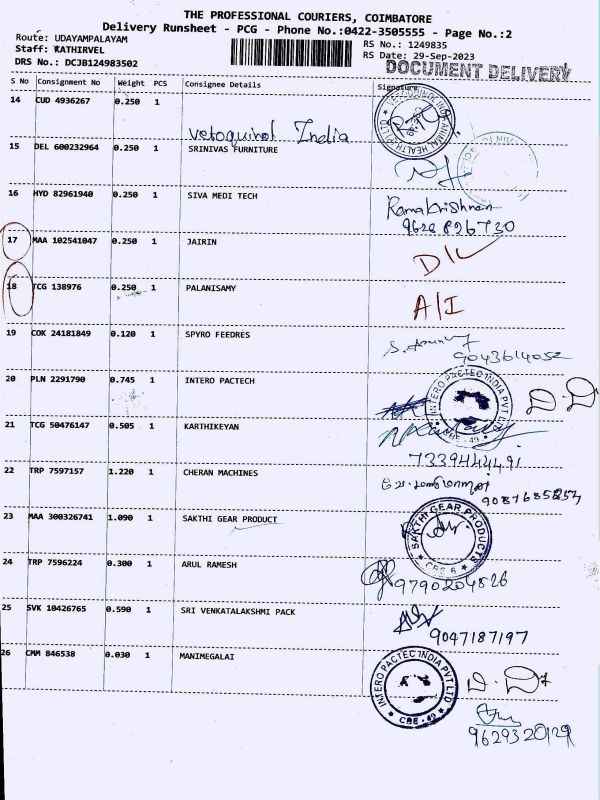 THE PROFESSIONAL COURIERS, COIMBATORE
Delivery Runsheet - PCG - Phone No.:0422-3505555 - Page No.:2
Route: UDAYAMPALAYAM
RS No.: 1249835
Staff: KATHIRVEL
RS Date: 29-Sep-2023
DRS No.: DCJB124983502
DOCUMENT DELIVERY
S No Consignment No Weight PCS Consignee Details Signature
14 CUD 4936267 0.250 1
Vetoquinol India
15 DEL 600232964 0.250 1 SRINIVAS FURNITURE
16 HYD 82961940 0.250 1 SIVA MEDI TECH
Ramakrishnan
9628826730
17 MAA 102541047 0.250 1 JAIRIN
D/L
18 TCG 138976 0.250 1 PALANISAMY
A/I
19 COK 24181849 0.120 1 SPYRO FEEDRES
9043614052
20 PLN 2291790 0.745 1 INTERO PACTECH
INTERO PACTEC INDIA PVT LTD
CBE-49
21 TCG 50476147 0.505 1 KARTHIKEYAN
7339444491
22 TRP 7597157 1.220 1 CHERAN MACHINES
9087685854
23 MAA 300326741 1.090 1 SAKTHI GEAR PRODUCT
SAKTHI GEAR PRODUCTS
CBE-6
24 TRP 7596224 0.300 1 ARUL RAMESH
9790204826
25 SVK 10426765 0.590 1 SRI VENKATALAKSHMI PACK
9047187197
26 CMM 846538 0.030 1 MANIMEGALAI
INTERO PACTEC INDIA PVT LTD
CBE-49
9629320129